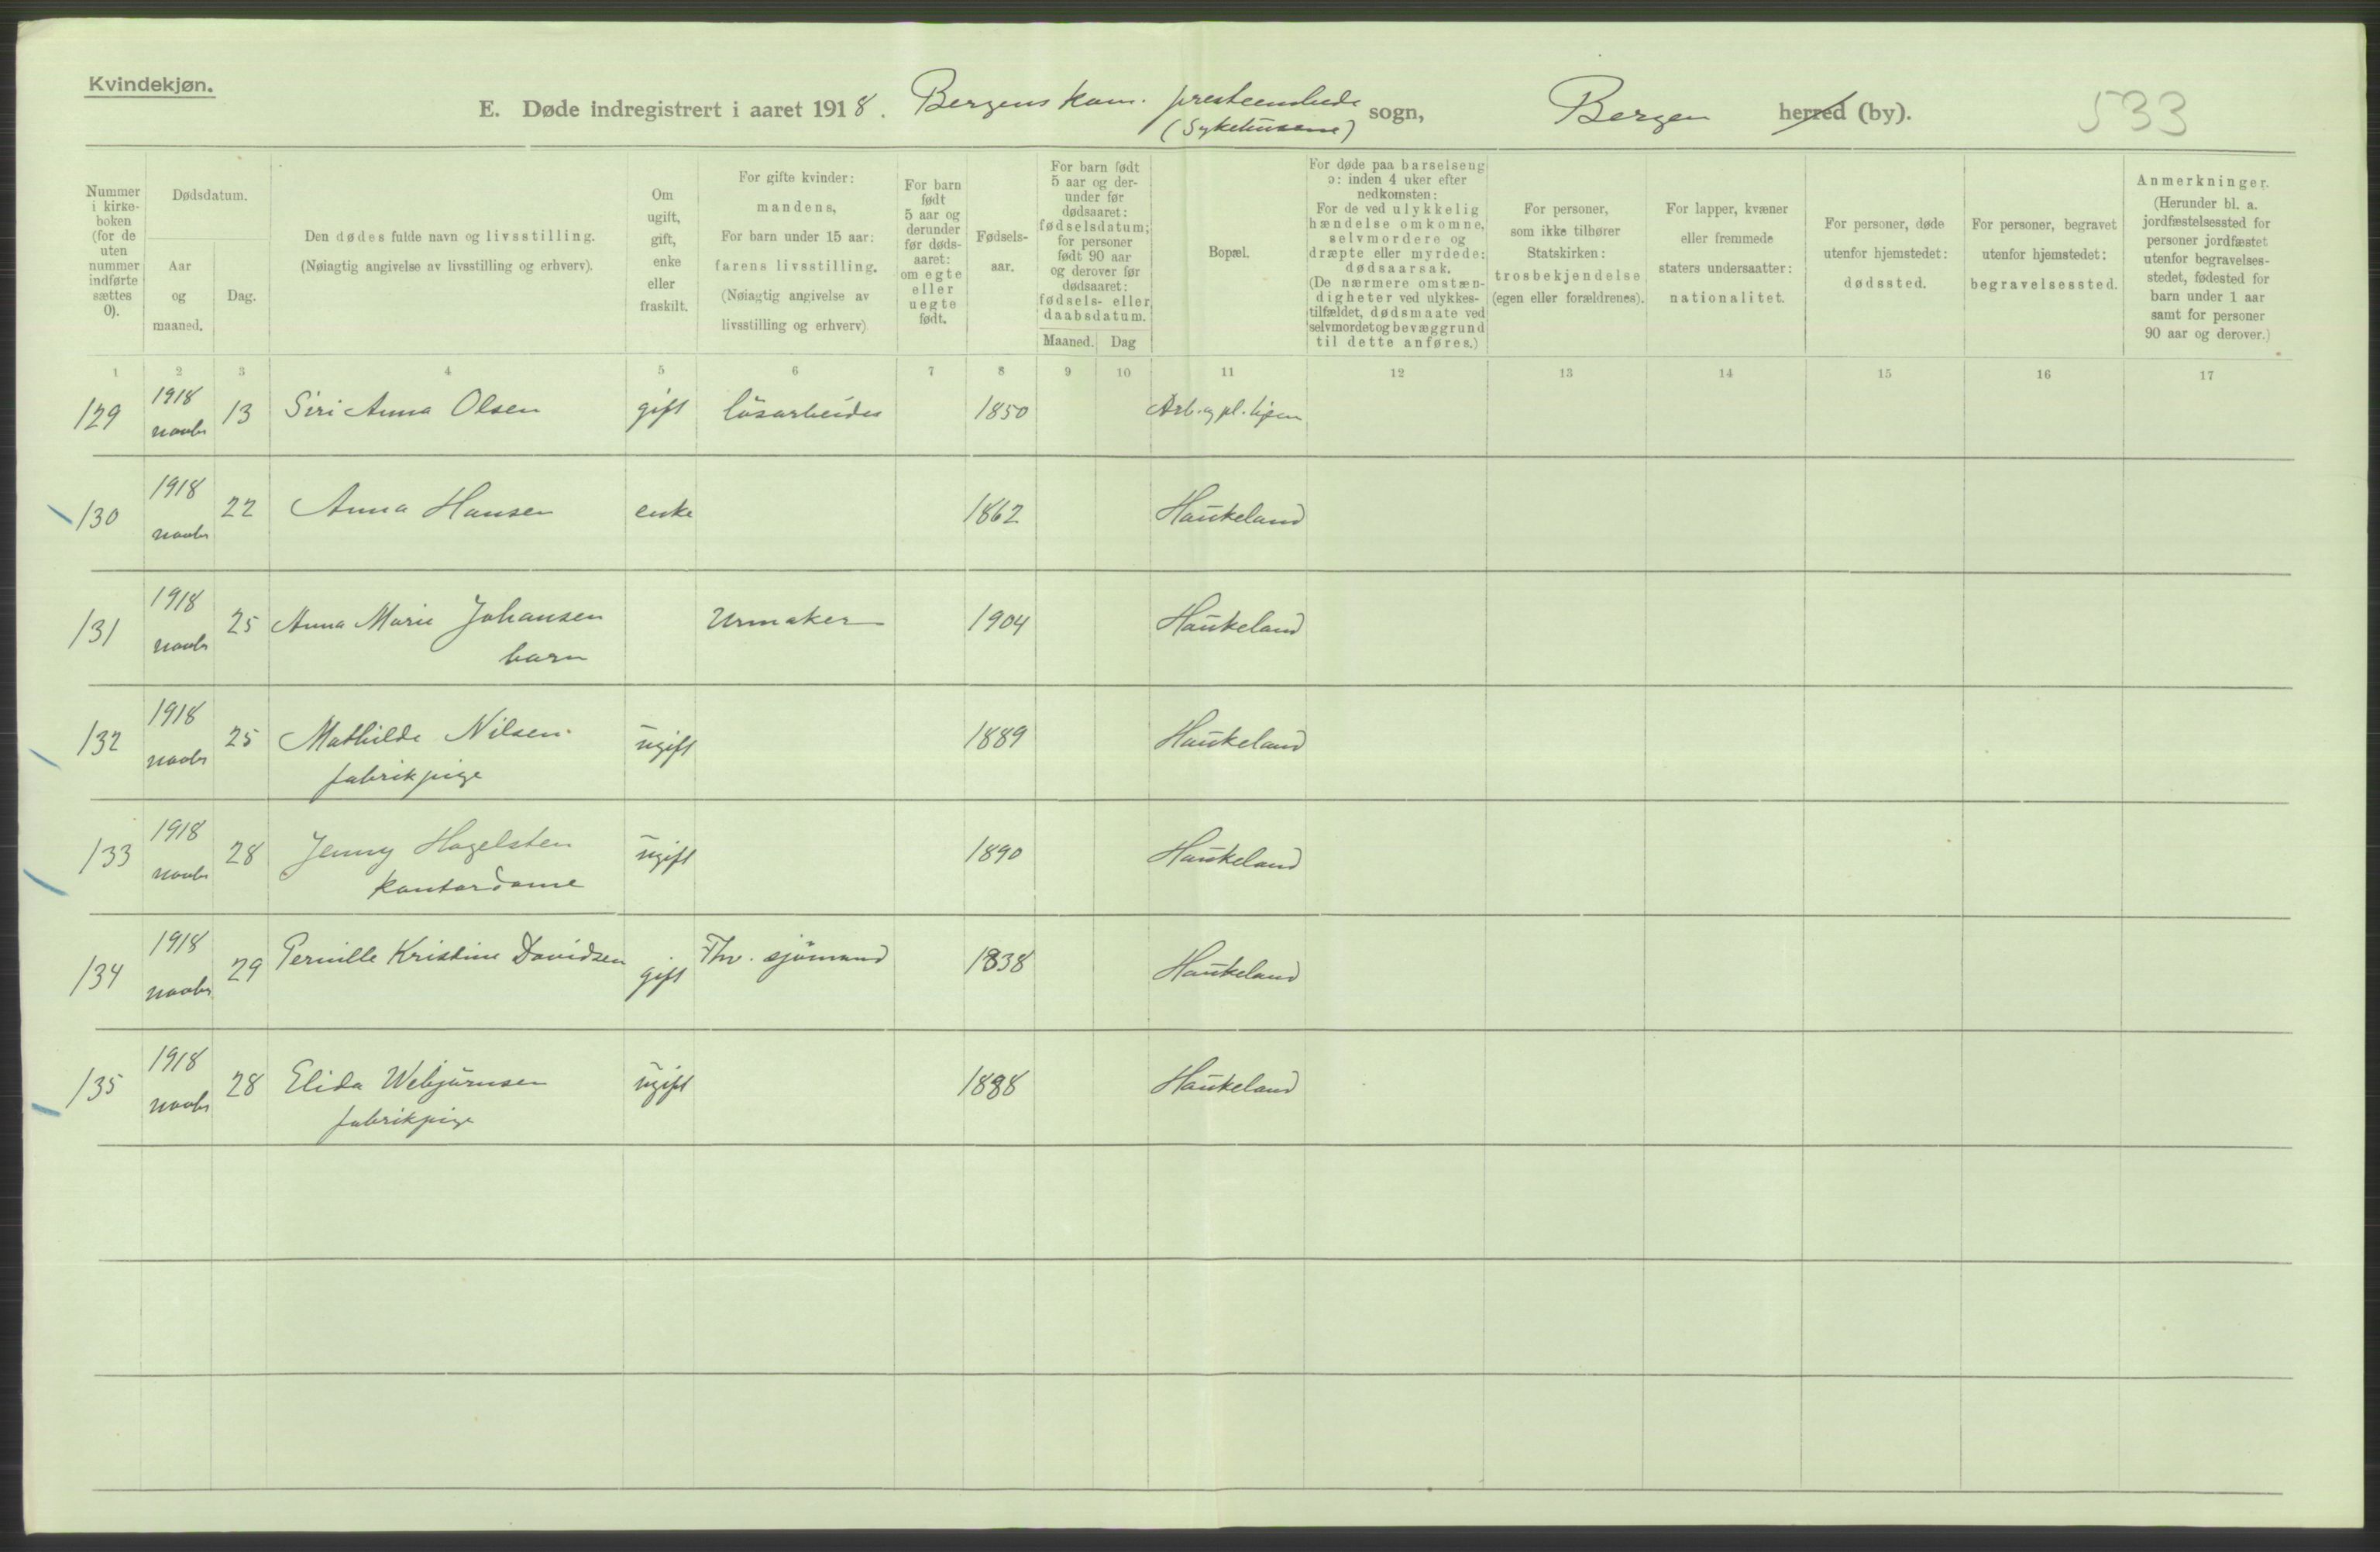 Kvindekjøn.
E. Døde indregistrert i aaret 1918. Bergens kom. presteembede sogn, Bergen herred (by). 533
(Sykehusene)
Nummer
i kirke-
boken
(for de
uten
nummer
indførte
sættes
0).
Dødsdatum.
Aar
og
maaned.
Dag.
Den dødes fulde navn og livsstilling.
(Nøiagtig angivelse av livsstilling og erhverv).
Om
ugift,
gift,
enke
eller
fraskilt.
For gifte kvinder:
mandens,
For barn under 15 aar:
farens livsstilling.
(Nøiagtig angivelse av
livsstilling og erhverv)
For barn
født
5 aar og
derunder
før døds-
aaret:
om egte
eller
uegte
født.
Fødsels-
aar.
For barn født
5 aar og der-
under før
dødsaaret:
fødselsdatum;
for personer
født 90 aar
og derover før
dødsaaret:
fødsels- eller
daabsdatum.
Maaned. Dag
Bopæl.
For døde paa barselseng
ɔ: inden 4 uker efter
nedkomsten:
For de ved ulykkelig
hændelse omkomne,
selvmordere og
dræpte eller myrdede:
dødsaarsak.
(De nærmere omstæn-
digheter ved ulykkes-
tilfældet, dødsmaate ved
selvmordet og bevæggrund
til dette anføres.)
For personer,
som ikke tilhører
Statskirken:
trosbekjendelse
(egen eller forældrenes).
For lapper, kvæner
eller fremmede
staters undersaatter:
nationalitet.
For personer, døde
utenfor hjemstedet:
dødssted.
For personer, begravet
utenfor hjemstedet:
begravelsessted.
Anmerkninger.
(Herunder bl. a.
jordfæstelsessted for
personer jordfæstet
utenfor begravelses-
stedet, fødested for
barn under 1 aar
samt for personer
90 aar og derover.)
1 2 3 4 5 6 7 8 9 10 11 12 13 14 15 16 17
129 1918 novbr 13 Siri Anna Olsen gift løsarbeider 1850 Arb. og pl. hjem
130 1918 novbr 22 Anna Hansen enke 1862 Haukeland
131 1918 novbr 25 Anna Marie Johansen Urmaker 1904 Haukeland
barn
132 1918 novbr 25 Mathilde Nilsen ugift 1889 Haukeland
fabrikpige
133 1918 novbr 28 Jenny Hagelsten ugift 1890 Haukeland
kontordame
134 1918 novbr 29 Pernille Kristine Davidsen gift Fhv. sjømand 1838 Haukeland
135 1918 novbr 28 Elida Webjørnsen ugift 1888 Haukeland
fabrikpige